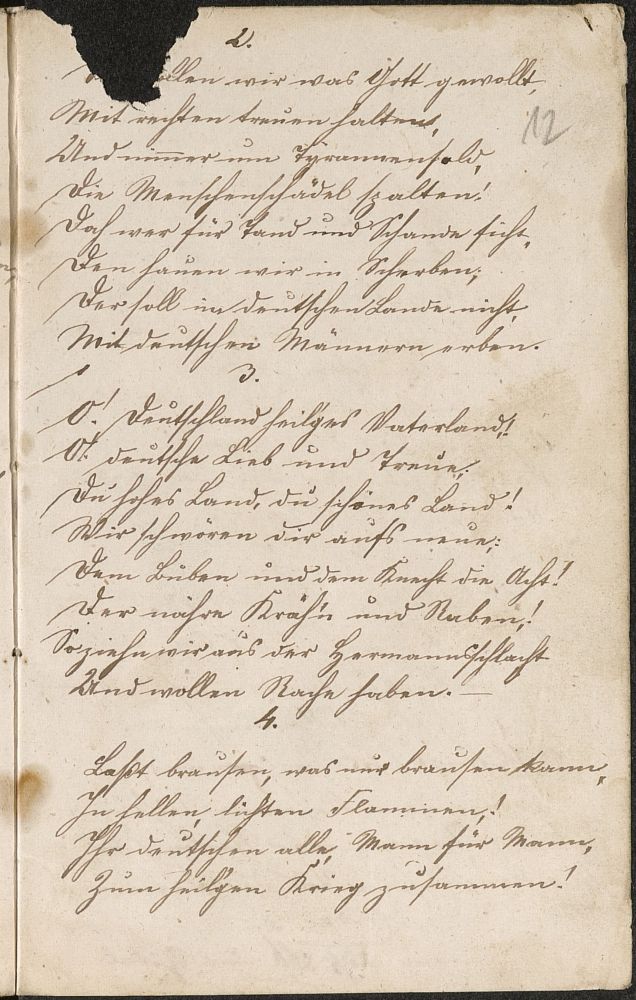 2.
wollen wir was Gott gewollt,
Mit rechten treuen halten,
12
Und nimmer um Tyrannensold,
Die Menschenschädel spalten!
Doch wer für Tand und Schande ficht,
Den hauen wir in Scherben;
Der soll im deutschen Lande nicht,
Mit deutschen Männern erben.
3.
O! Deutschland heilges Vaterland!
O! deutsche Lieb und Treue,
Du hohes Land, du schönes Land!
Wir schwören dir aufs neue;
Dem Buben und dem Knecht die Acht!
Der nähre Kräh'n und Raben,!
So ziehn wir aus der Hermannsschlacht
Und wollen Rache haben. —
4.
Laßt brausen, was nur brausen kann,
In hellen, lichten Flammen,!
Ihr deutschen alle, Mann für Mann,
Zum heilgen Krieg zusammen!